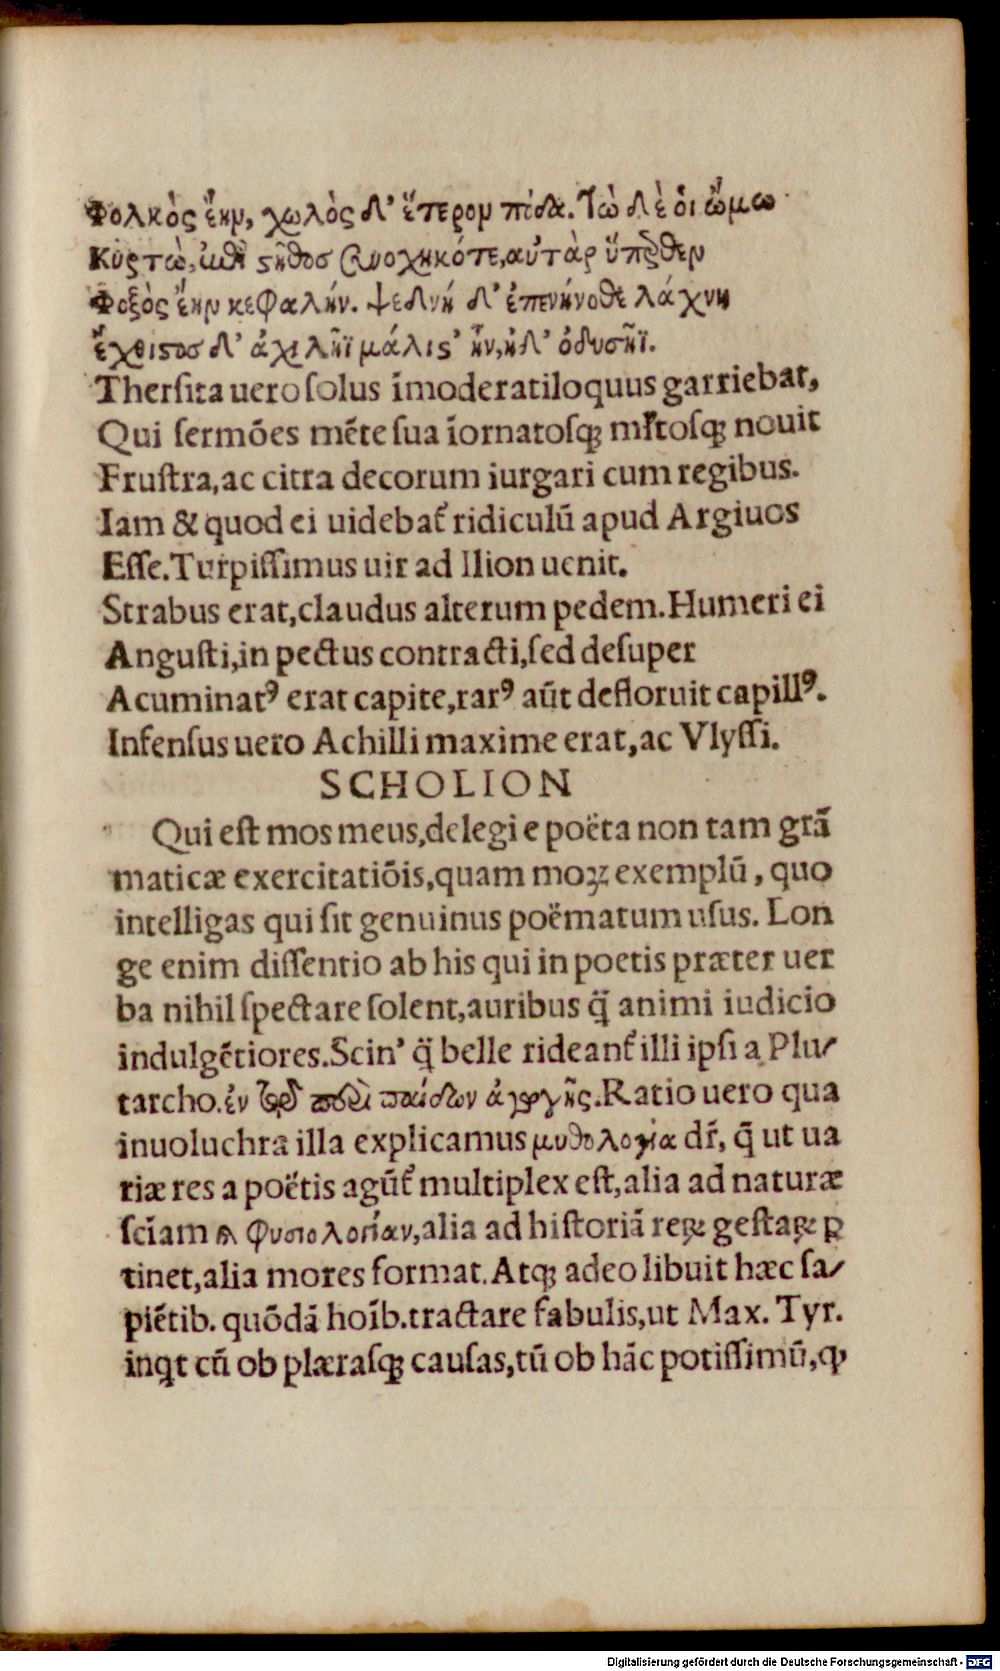 Φολκὸς ἔην, χωλὸς δ' ἕτερον πόδα. Τὼ δὲ οἱ ὤμω
Κυρτὼ, ἐπὶ στῆθος συνοχηκότε, αὐτὰρ ὕπερθεν
Φοξὸς ἔην κεφαλήν. ψεδνή δ' ἐπενήνοθε λάχνη
ἔχθιστος δ' ἀχιλῆϊ μάλιστ' ἦν, ἠδ' ὀδυσῆϊ.
Thersita uero solus ĩmoderatiloquus garriebat,
Qui sermões mẽte sua ĩornatosq; mĩtosq; nouit
Frustra, ac citra decorum iurgari cum regibus.
Iam & quod ei uidebat̃ ridiculũ apud Argiuos
Esse. Turpissimus uir ad Ilion uenit.
Strabus erat, claudus alterum pedem. Humeri ei
Angusti, in pectus contracti, sed desuper
Acuminatꝰ erat capite, rarꝰ aũt defloruit capillꝰ.
Infensus uero Achilli maxime erat, ac Vlyssi.
SCHOLION
Qui est mos meus, delegi e poëta non tam grã
maticæ exercitatiõis, quam moꝝ exemplũ, quo
intelligas qui sit genuinus poëmatum usus. Lon
ge enim dissentio ab his qui in poetis præter uer
ba nihil spectare solent, auribus q̃ animi iudicio
indulgẽtiores. Scin' q̃ belle rideant̃ illi ipsi a Plu/
tarcho. ἐν τῷ περὶ παίδων ἀγωγῆς. Ratio uero qua
inuoluchra illa explicamus μυθολογία dr̃, q̃ ut ua
riæ res a poëtis agũt̃ multiplex est, alia ad naturæ
scĩam & φυσιολογίαν, alia ad historiã reꝝ gestaꝝ ꝑ
tinet, alia mores format. Atq; adeo libuit hæc sa/
piẽtib. quõdã hoĩb. tractare fabulis, ut Max. Tyr.
inqt cũ ob plærasq; causas, tũ ob hãc potissimũ, ꝙ
Digitalisierung gefördert durch die Deutsche Forschungsgemeinschaft - DFG